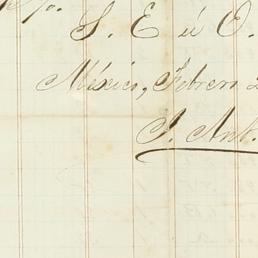 S. E ú O.
México, Febrero 2
J. Ant.